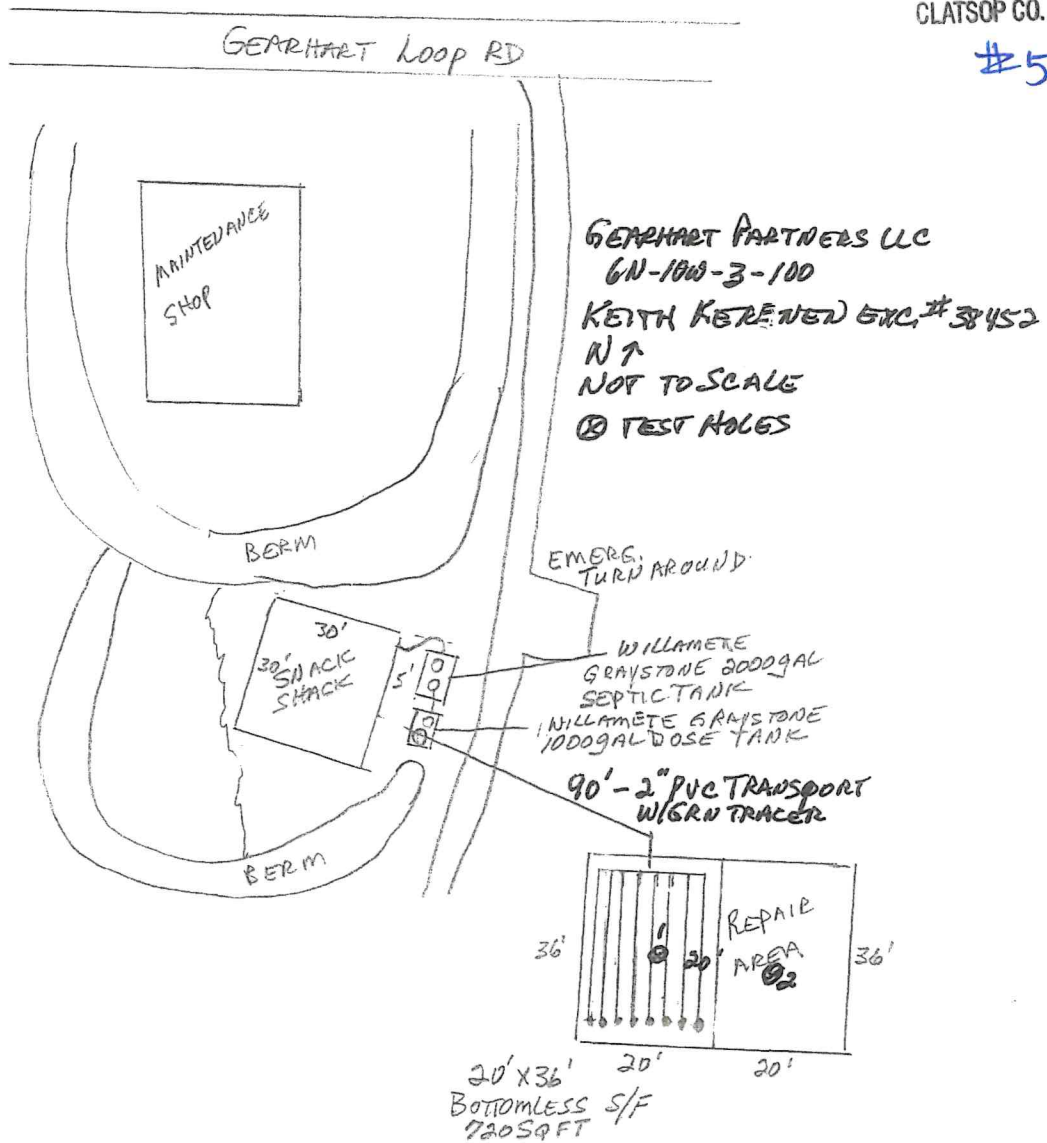 CLATSOP CO.
#5
GEARHART LOOP RD
MAINTENANCE
SHOP
GEARHART PARTNERS LLC
6N-10W-3-100
KEITH KERENEN EXC. #38452
N ↑
NOT TO SCALE
⊗ TEST HOLES
BERM
EMERG.
TURN AROUND
30'
30'
SNACK
SHACK
5'
WILLAMETE
GRAYSTONE 2000gAL
SEPTIC TANK
WILLAMETE GRAYSTONE
1000gAL DOSE TANK
90'-2" PVC TRANSPORT
W/GRN TRACER
BERM
36'
1
20'
REPAIR
AREA
2
36'
20'
20'
20' X 36'
BOTTOMLESS S/F
720 SQ FT